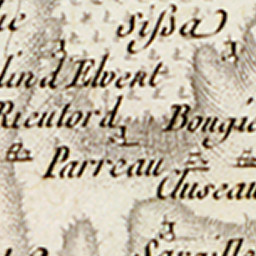 sissa
lind Elvent
Rieutord
Bougie
Parreau
Cluseau